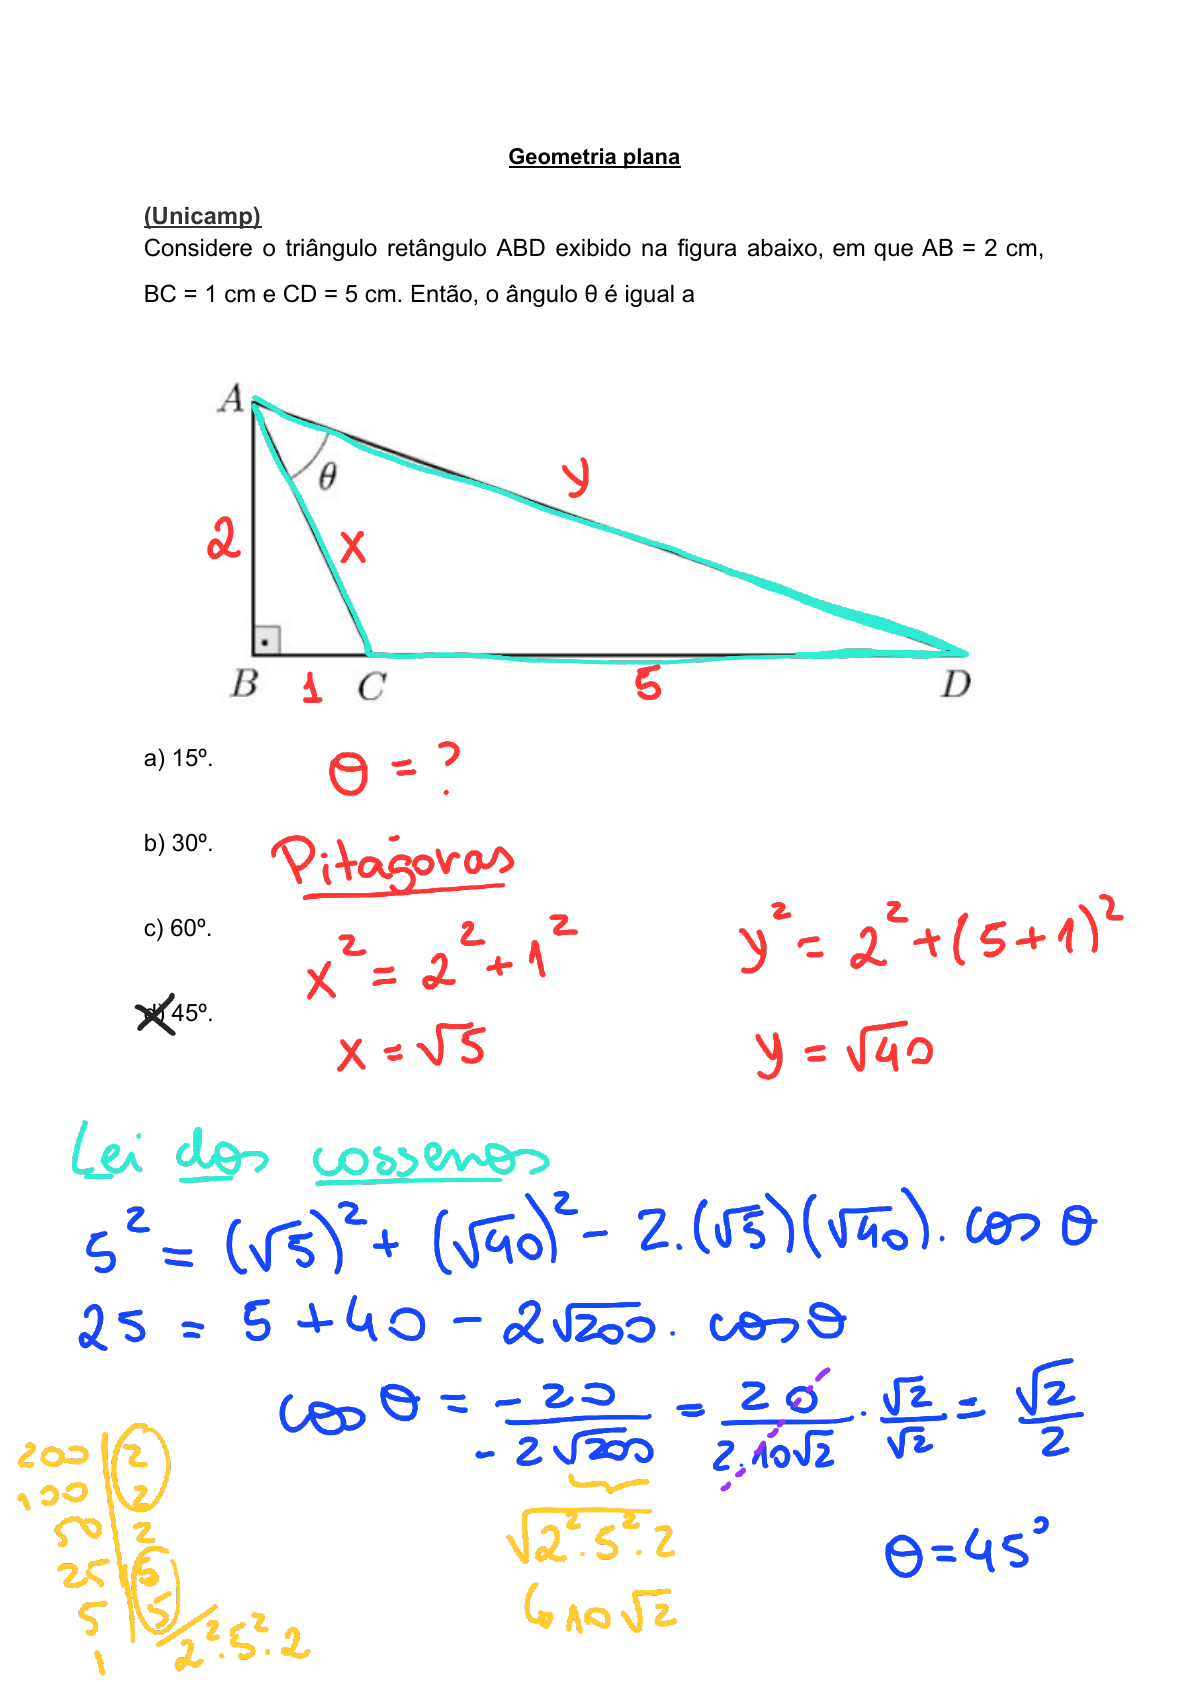 Geometria plana
(Unicamp)
Considere o triângulo retângulo ABD exibido na figura abaixo, em que AB = 2 cm,
BC = 1 cm e CD = 5 cm. Então, o ângulo θ é igual a
A
θ
y
2
x
B 1 C 5 D
a) 15º.
θ = ?
b) 30º.
Pitágoras
c) 60º.
x² = 2² + 1²
y² = 2² + (5+1)²
d) 45º.
x = √5
y = √40
Lei dos cossenos
5² = (√5)² + (√40)² - 2.(√5)(√40). cos θ
25 = 5 + 40 - 2√200. cos θ
cos θ = -20/-2√200 = 20/2.10√2 . √2/√2 = √2/2
200 | 2
100 | 2
50 | 2
25 | 5
5 | 5
1
2².5².2
√2².5².2
↳ 10√2
θ = 45°